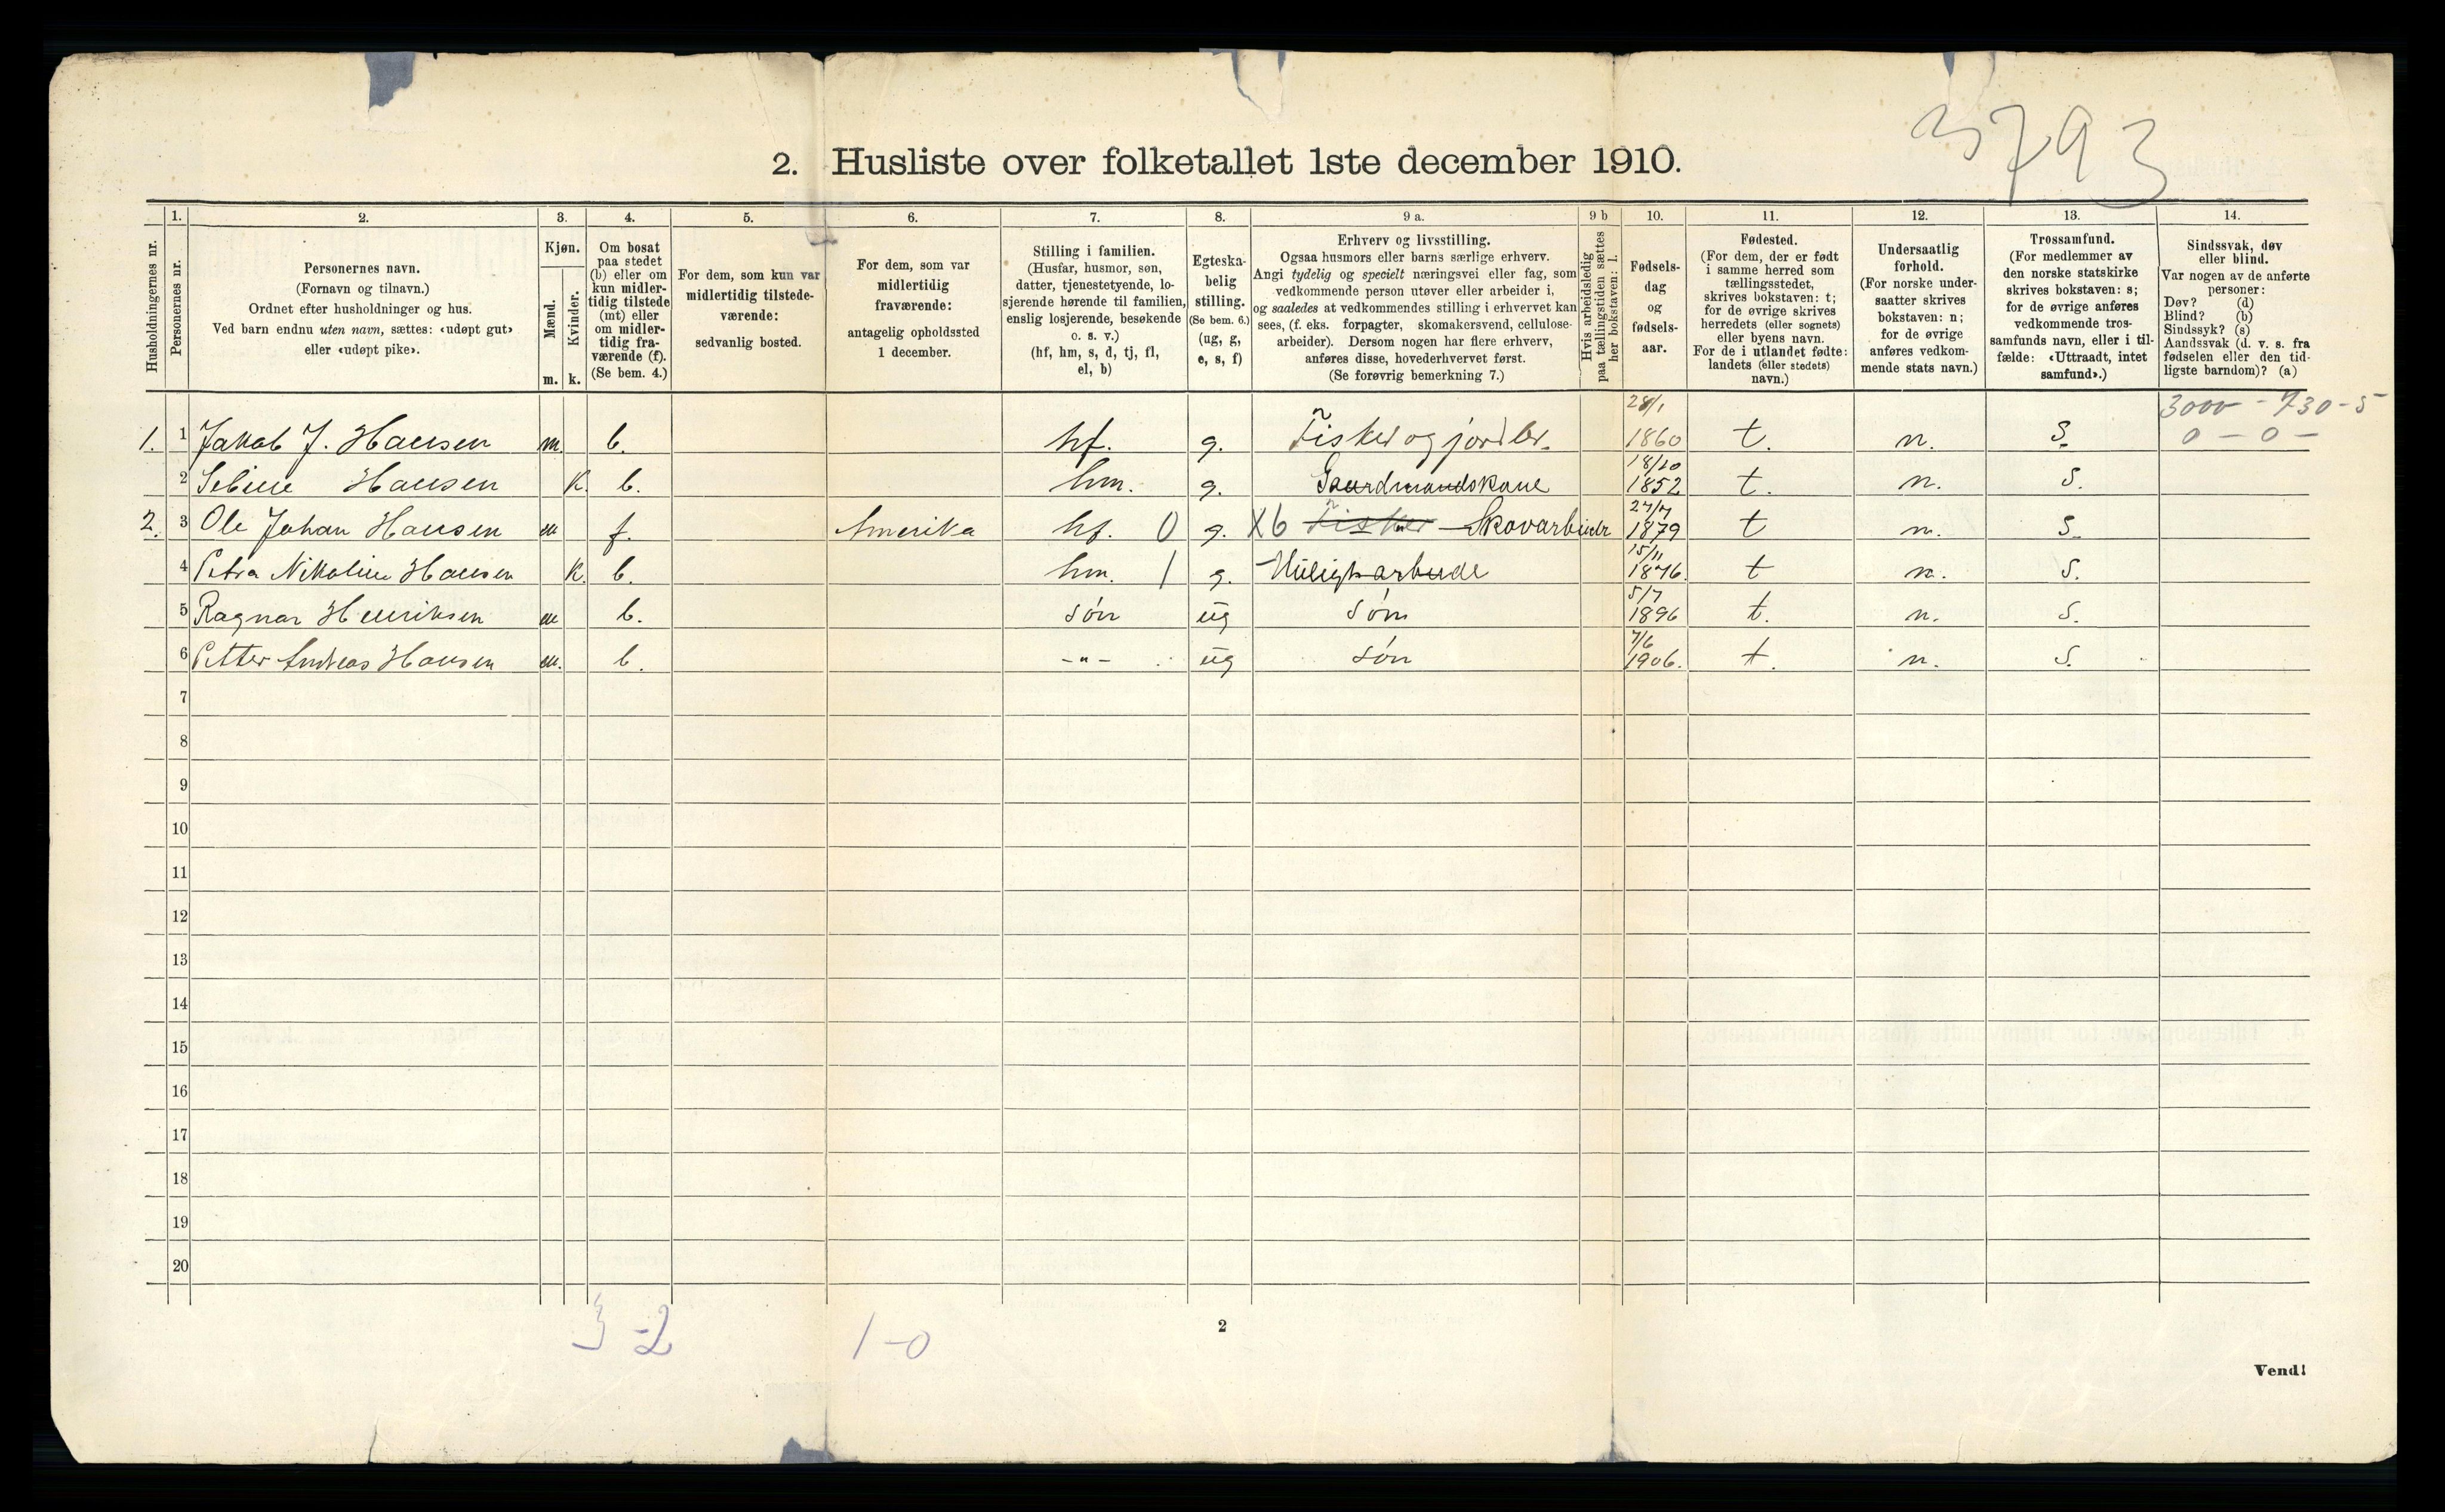 3793
2. Husliste over folketallet 1ste december 1910.
1. 2. 3. 4. 5. 6. 7. 8. 9 a. 9 b 10. 11. 12. 13. 14.
Husholdningernes nr.
Personernes nr.
Personernes navn.
(Fornavn og tilnavn.)
Ordnet efter husholdninger og hus.
Ved barn endnu uten navn, sættes: «udøpt gut»
eller «udøpt pike».
Kjøn.
Mænd.
Kvinder.
m. k.
Om bosat
paa stedet
(b) eller om
kun midler-
tidig tilstede
(mt) eller
om midler-
tidig fra-
værende (f).
(Se bem. 4.)
For dem, som kun var
midlertidig tilstede-
værende:
sedvanlig bosted.
For dem, som var
midlertidig
fraværende:
antagelig opholdssted
1 december.
Stilling i familien.
(Husfar, husmor, søn,
datter, tjenestetyende, lo-
sjerende hørende til familien,
enslig losjerende, besøkende
o. s. v.)
(hf, hm, s, d, tj, fl,
el, b)
Egteska-
belig
stilling.
(Se bem. 6.)
(ug, g,
e, s, f)
Erhverv og livsstilling.
Ogsaa husmors eller barns særlige erhverv.
Angi tydelig og specielt næringsvei eller fag, som
vedkommende person utøver eller arbeider i,
og saaledes at vedkommendes stilling i erhvervet kan
sees, (f. eks. forpagter, skomakersvend, cellulose-
arbeider). Dersom nogen har flere erhverv,
anføres disse, hovederhvervet først.
(Se forøvrig bemerkning 7.)
Hvis arbeidsledig
paa tællingstiden sættes
her bokstaven: l.
Fødsels-
dag
og
fødsels-
aar.
Fødested.
(For dem, der er født
i samme herred som
tællingsstedet,
skrives bokstaven: t;
for de øvrige skrives
herredets (eller sognets)
eller byens navn.
For de i utlandet fødte:
landets (eller stedets)
navn.)
Undersaatlig
forhold.
(For norske under-
saatter skrives
bokstaven: n;
for de øvrige
anføres vedkom-
mende stats navn.)
Trossamfund.
(For medlemmer av
den norske statskirke
skrives bokstaven: s;
for de øvrige anføres
vedkommende tros-
samfunds navn, eller i til-
fælde: «Uttraadt, intet
samfund».)
Sindssvak, døv
eller blind.
Var nogen av de anførte
personer:
Døv? (d)
Blind? (b)
Sindssyk? (s)
Aandssvak (d. v. s. fra
fødselen eller den tid-
ligste barndom)? (a)
3000 - 730-5
0 - 0 -
1. 1 Jakob J. Hansen m. b. hf. g. Fisker og jordbr. 28/1 1860 t. n. S.
2 Sebine Hansen K. b. hm. g. Gaardmandskone 18/10 1852 t. n. S.
2. 3 Ole Johan Hansen m f. Amerika hf. 0 g. X6 Fisker Skovarbeider 27/7 1879 t n. S.
4 Petra Nikoline Hansen K. b. hm. 1 g. Huligt arbeide 15/11 1876. t n. S.
5 Ragnar Henriksen m b. søn ug søn 5/7 1896 t. n. S.
6 Petter Andreas Hansen m. b. -"- ug søn 7/6 1906. t. n. S.
7
8
9
10
11
12
13
14
15
16
17
18
19
20
3-2 1-0
2
Vend!